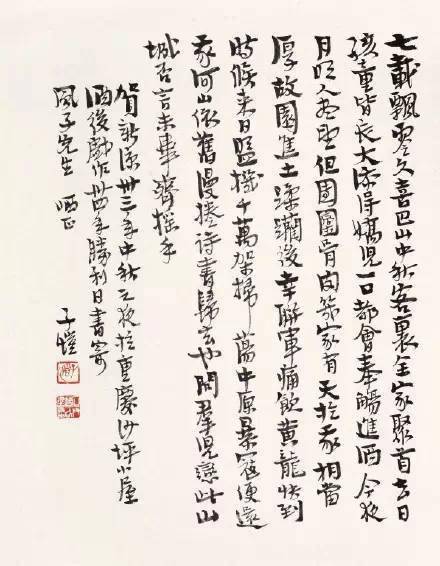 七載飄零久喜巴山中秋客裏全家聚首去日
孩童皆長大添得嬌兒一口都會奉觴進酒今夜
月明人盡望但團圞骨肉幾家有天於我相當
厚故園焦土蹂躪後幸聯軍痛飲黃龍快到
時候來日盟機千萬架掃蕩中原暴寇便還
我河山依舊漫捲詩書歸去也問羣兒戀此山
城否言未畢齊搖手
賀新涼卅三年中秋之夜於重慶沙坪小屋
酒後戲作卅四年勝利日書寄
風子先生 哂正
子愷